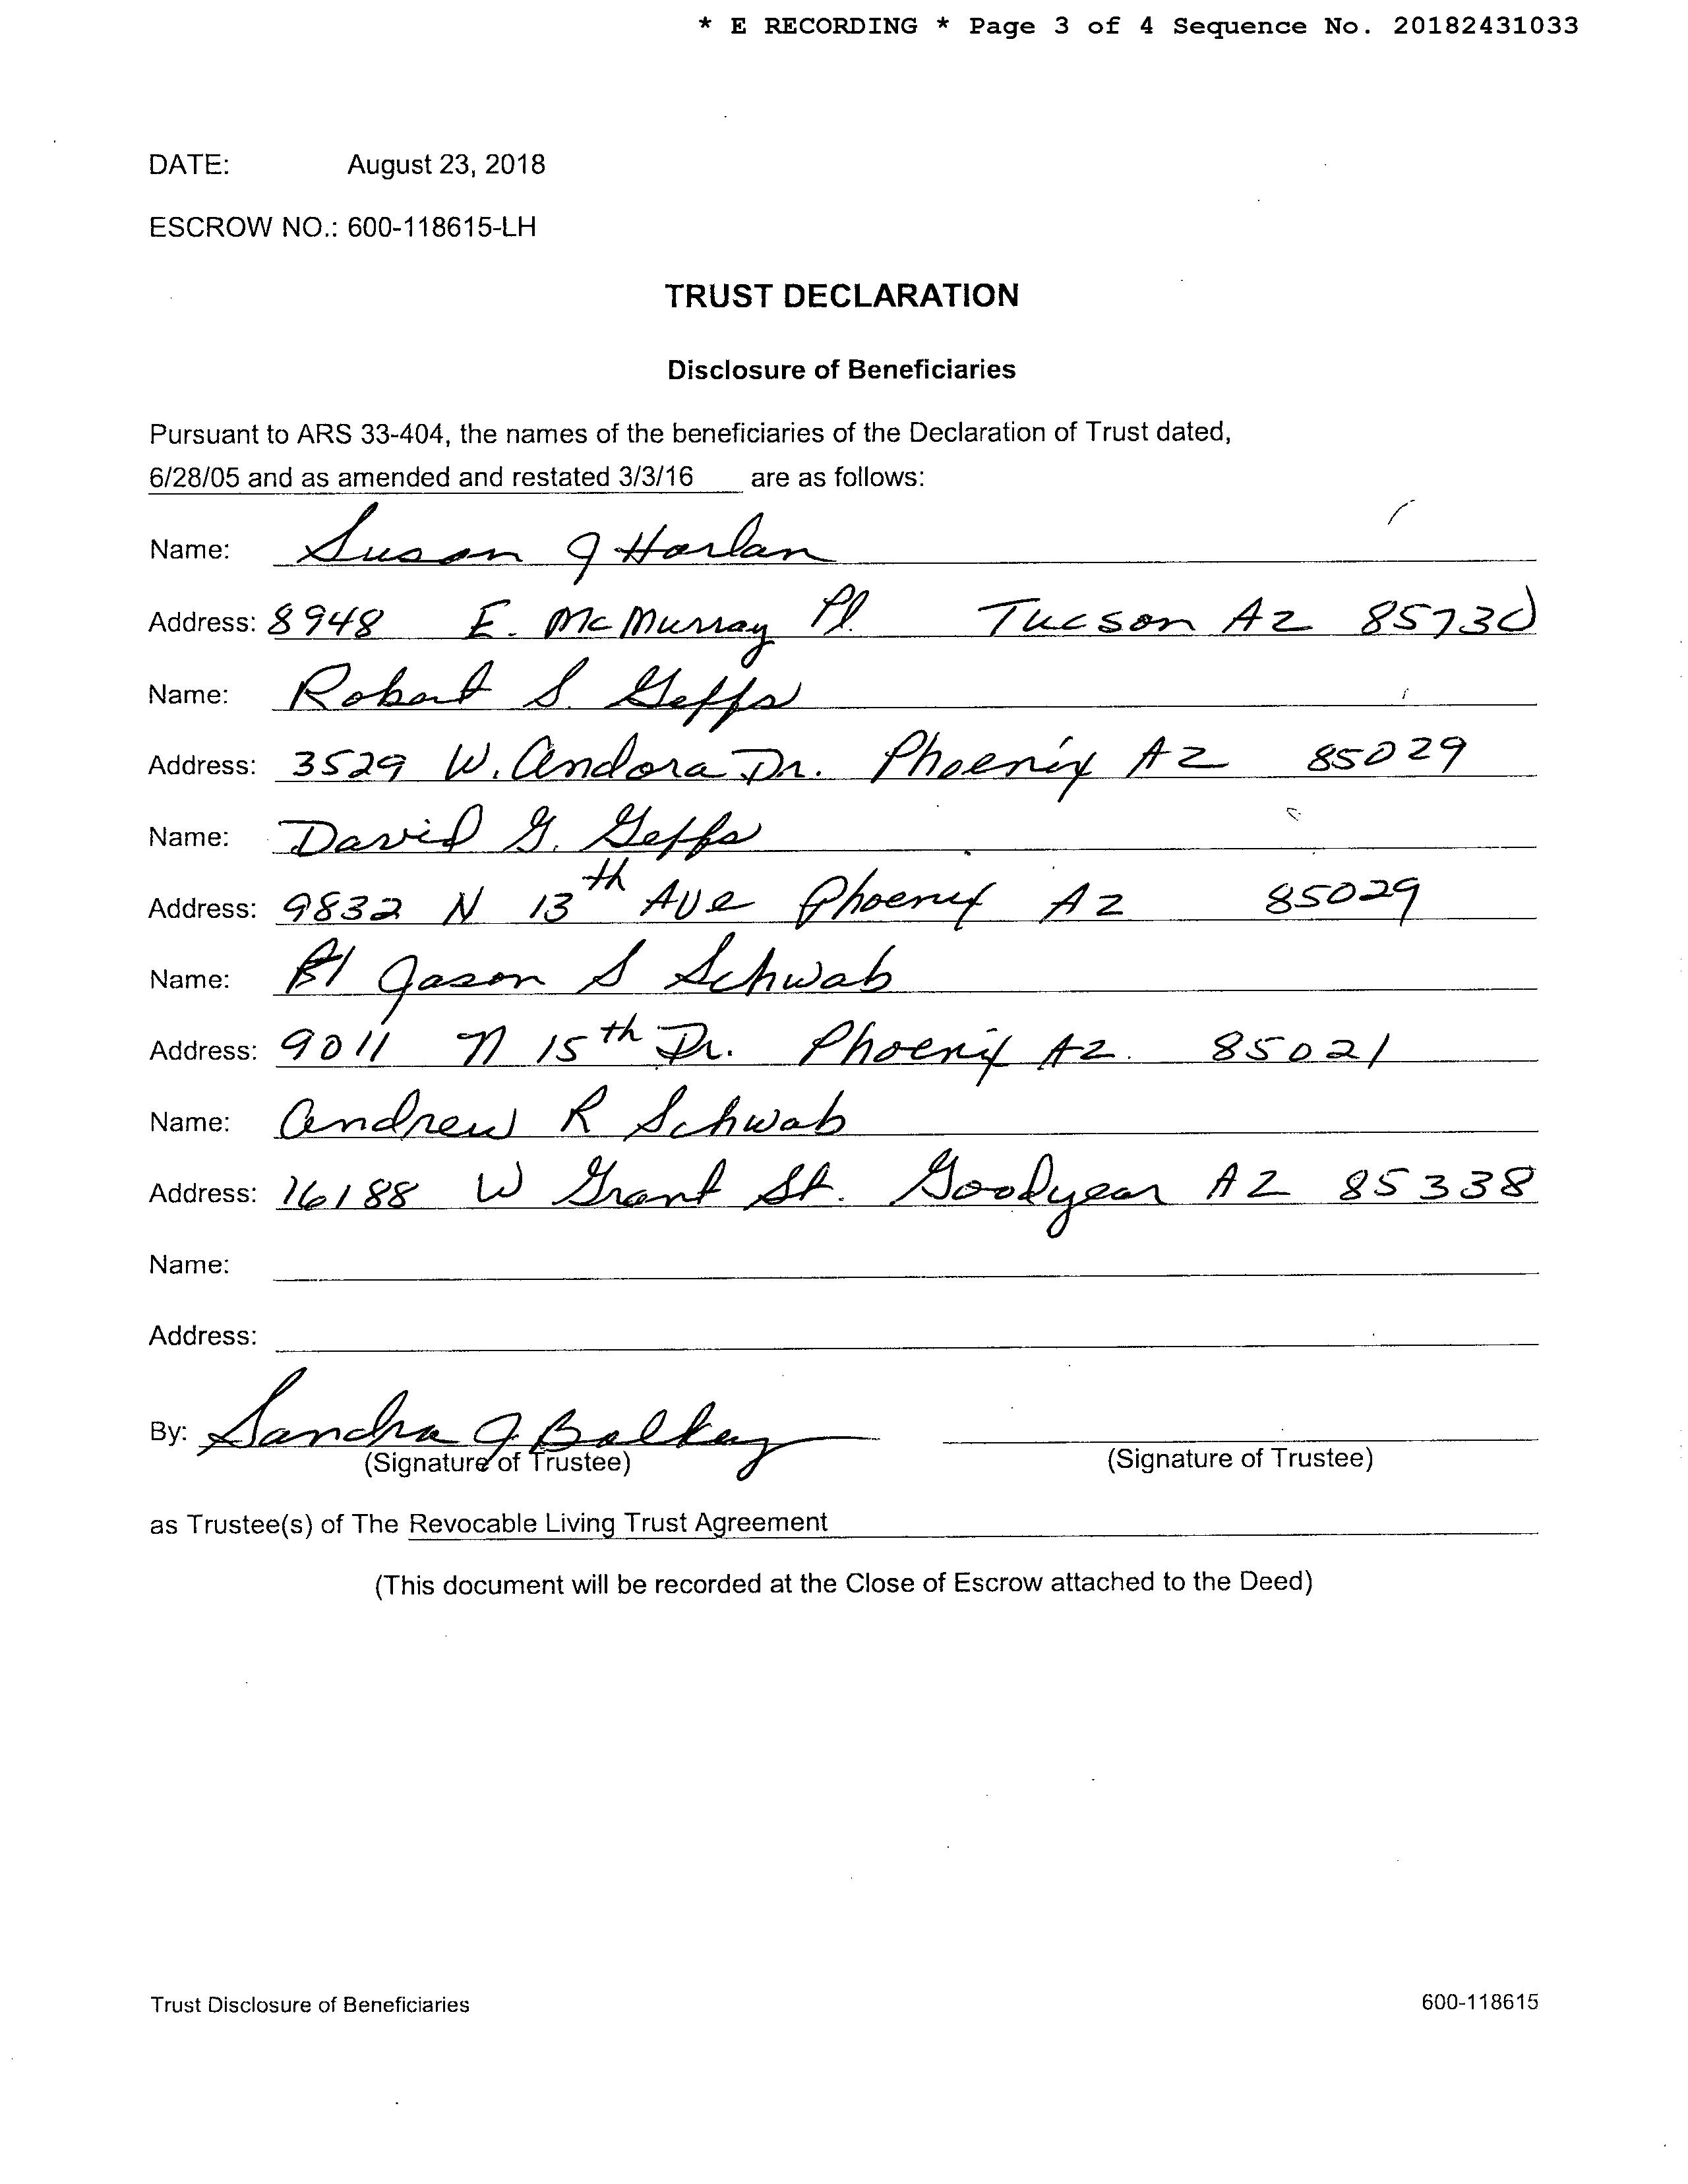 * E RECORDING * Page 3 of 4 Sequence No. 20182431033
DATE: August 23, 2018
ESCROW NO.: 600-118615-LH
TRUST DECLARATION
Disclosure of Beneficiaries
Pursuant to ARS 33-404, the names of the beneficiaries of the Declaration of Trust dated,
6/28/05 and as amended and restated 3/3/16 are as follows:
Name: Susan J Harlan
Address: 8948 E. McMurray Pl. Tucson AZ 85730
Name: Robert S. Geffs
Address: 3529 W. Andora Dr. Phoenix AZ 85029
Name: David G. Geffs
Address: 9832 N 13th Ave Phoenix AZ 85029
Name: Jason S Schwab
Address: 9011 N 15th Dr. Phoenix AZ. 85021
Name: Andrew R Schwab
Address: 16188 W Grant St. Goodyear AZ 85338
Name:
Address:
By: Sandra J Balkey
(Signature of Trustee) (Signature of Trustee)
as Trustee(s) of The Revocable Living Trust Agreement
(This document will be recorded at the Close of Escrow attached to the Deed)
Trust Disclosure of Beneficiaries 600-118615